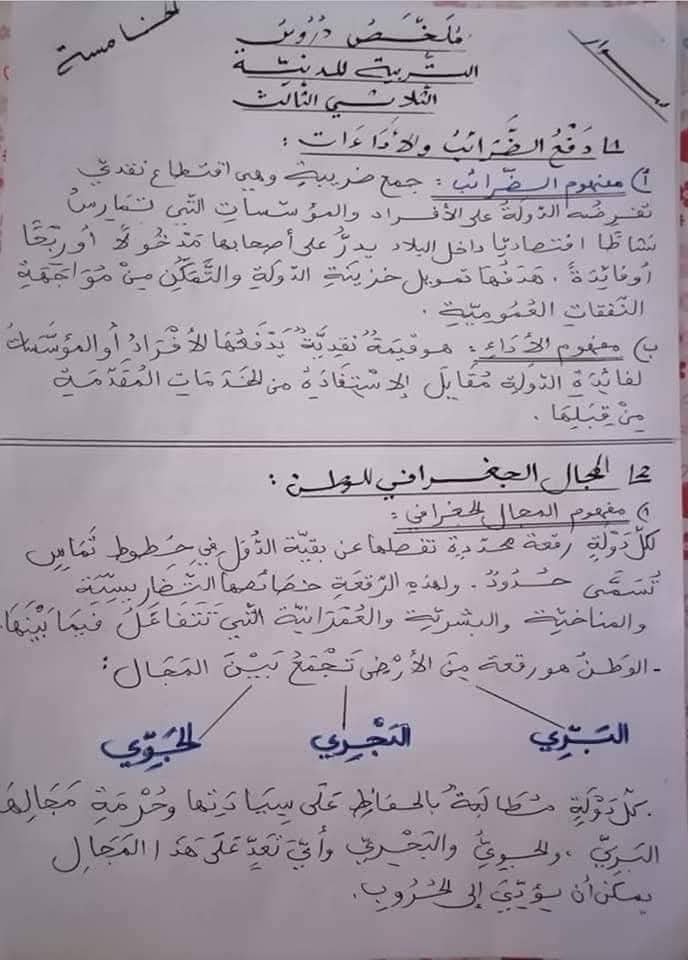 الخامسة
مُلَخَّصُ دُرُوسِ
التربية المدنيّة
الثلاثي الثالث
1/ دَفْعُ الضَّرَائِبُ والأَدَاءَات :
أ) مفهوم الضّرائب : جمع ضريبةٍ وهي اقتطاع نقديّ
تفرضه الدّولَةُ على الأفراد والمؤسّسات التّي تُمَارِسُ
نشاطًا اقتصاديًا داخل البلاد يدرُّ على أصحابها مَدْخُولًا أو رِبْحًا
أو فائدةً . هَدَفُهَا تمويل خزينة الدّولة والتَّمَكُّنِ مِنْ مُوَاجَهَةِ
النّفقات العُمُومِيّةِ .
ب) مفهوم الأداءِ : هو قيمةٌ نقديَّةٌ يَدْفَعُهَا الأَفْرَادُ أو المؤسَّسَاتُ
لفائدةِ الدّولة مُقَابِلَ الإسْتِفَادَةِ من الخَدَمَاتِ المُقَدَّمَةِ
مِنْ قِبَلِهَا .
2/ المجال الجغرافي للوطن :
أ) مفهوم المجال الجغرافي :
لكلّ دَوْلَةٍ رقعة محدّدة تفصلها عن بقيّة الدُّوَلِ في خطوط تَمَاسٍ
تُسَمَّى حُدُودٌ . ولهذه الرّقعةِ خصائصها التّضاريسيّة
والمناخيّة والبشريّة والعُمْرَانِيّة التّي تَتَفَاعَلُ فِيمَا بَيْنَهَا.
- الوَطَنُ هو رقعة مِنَ الأَرْضِ تَجْمَعُ بَيْنَ المَجَالِ :
البَرِّي البَحْرِي الجَوِّي
. كلّ دَوْلَةٍ مُطَالَبَةٌ بالحفاظِ عَلَى سِيَادَتِها وحُرْمَةِ مَجَالِهَا
البَرِيِّ ، والجويِّ والبَحْرِيّ وأيّ تَعَدٍّ عَلَى هَذَا المَجَالِ
يمكن أن يُؤدِّيَ إلى الحُرُوبِ .